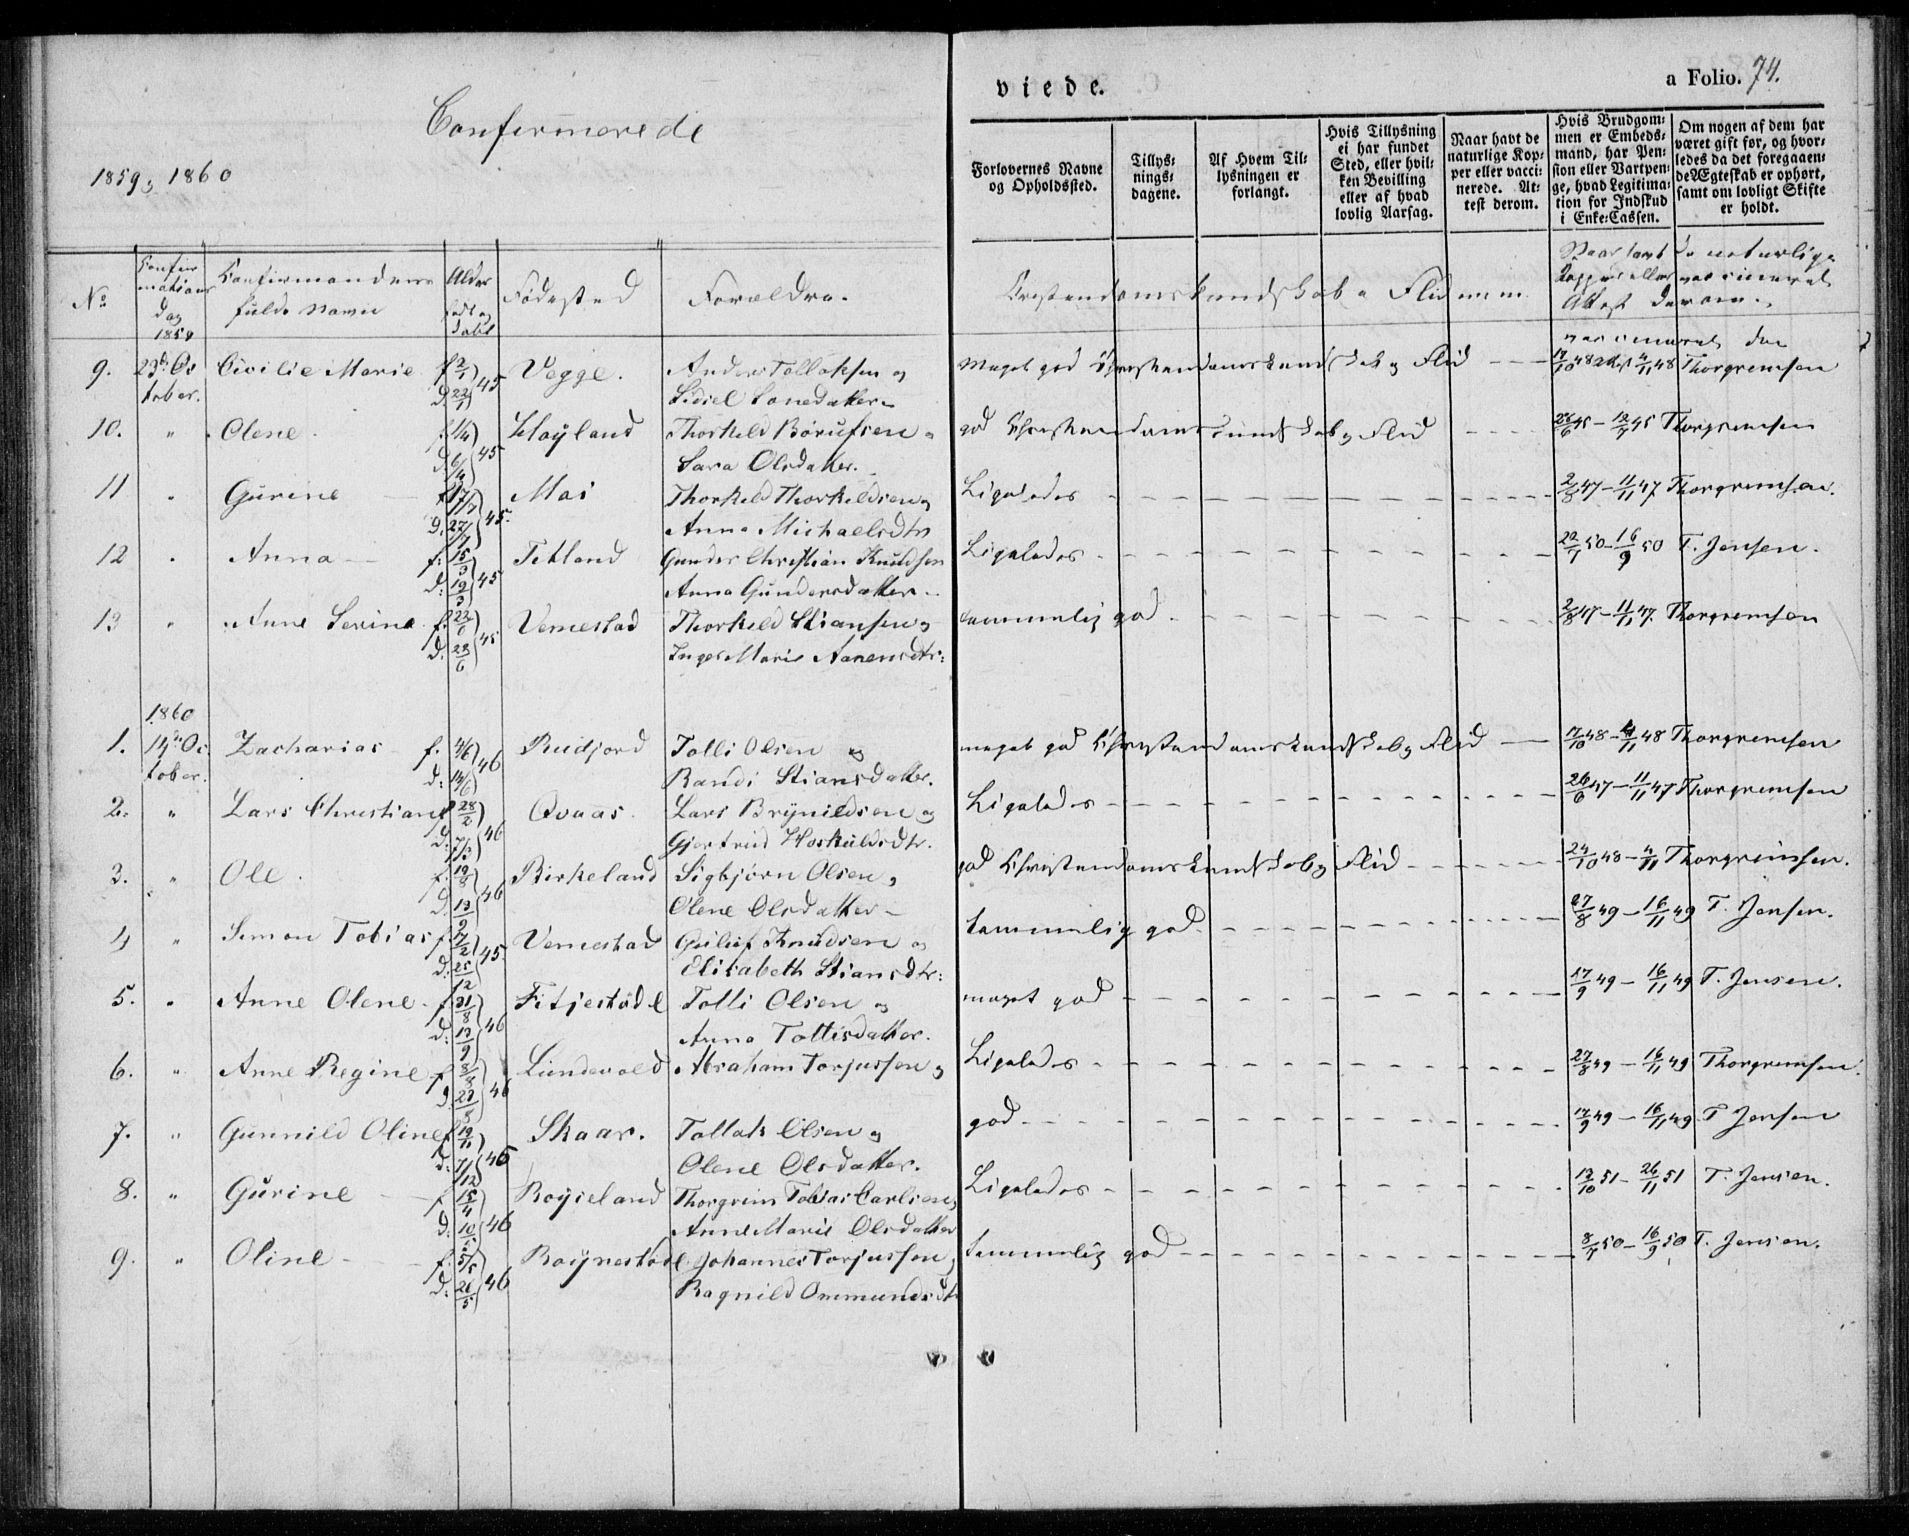 Confirmerede
1859 & 1860
viede.
a Folio. 74.
Forlovernes Navne og Opholdssted.
Tillysningsdagene.
Af Hvem Tillysningen er forlangt.
Hvis Tillysning ei har fundet Sted, eller hvilken Bevilling eller af hvad lovlig Aarsag.
Naar havt de naturlige Kopper eller vaccinerede. Attest derom.
Hvis Brudgommen er Embedsmand, har Pension eller Vartpenge, hvad Legitimation for Indskud i Enke-Cassen.
Om nogen af dem har været gift før, og hvorledes da det foregaaende Ægteskab er ophørt, samt om lovligt Skifte er holdt.
No
Confirmations Dag 1859
Confirmandens fulde Navn
Alder født og døbt
Fødested
Forældre.
Cristendomskundskab & Flid m.m.
Naar havt de naturlige Kopper eller vaccineret Attest derom.
vaccineret den
9. 23de October. Cicilie Marie f. 2/1 Vegge. Anders Tollaksen og meget god Christendomskundskab & Flid 17/10 48 4/11 48 Thorgremsen
d. 22/1 45 Sidsel Lonedatter
10. " Olene. f. 1/4 Høyland Thorkeld Børufsen & god Christendomskundskab & Flid 26/6 45 - 12/7 45 Thorgremsen
d. 6/4 45 Sara Olsdatter.
11 " Gurine f. 17/7 Moi Thorkeld Thorkeldsen & Ligeledes 2/8 47 - 11/11 47 Thorgremsen.
d. 27/7 45. Anna Michaelsdtr
12 " Anna f. 15/3 Tetland Gunder Christian Knudsen Ligeledes 22/7 50 - 16/9 50 T. Jensen.
d. 19/3 45 Anna Gundersdatter
13 " Anne Serine f. 22/6 Vemestad Thorkeld Stiansen & temmelig god 2/8 47 - 11/11 47. Thorgremsen
d. 28/6 45 Inger Marie Aanensdtr:
1860
1. 14de October. Zacharias f. 4/6 Ruidjord Tolli Olsen og meget god Christendomskundskab & Flid 17/10 48 - 4/11 48 Thorgremsen
d: 14/6 46 Randi Stiansdatter.
2. " Lars Christian f. 28/2 Qvaas. Lars Brynildsen og Ligeledes 26/6 47 - 11/11 47 Thorgremsen
d. 7/3 46 Gjertrud Hoskuldsdtr.
3. " Ole. f. 19/8 Birkeland Sigbjørn Olsen & god Christendomskundskab & Flid 24/10 48 - 4/11 Thorgrimsen.
d. 13/9 46 Olene Olsdatter
4 " Simon Tobias f. 7/2 Vemestad Guluf Knudsen og temmelig god 27/8 49 - 16/11 49 T. Jensen.
d. 25/12 45 Elisabeth Stiansdtr:
5. " Anne Olene f. 31/8 Fitjestødl Tolli Olsen og meget god 17/9 49 - 16/11 49 T. Jensen.
d. 13/9 46 Anna Tollisdatter.
6. " Anne Regine f. 8/8 Lundevold Abraham Torjussen og Ligeledes 27/8 49 - 16/11 49 Thorgremsen.
d. 23/8 46
7. " Gunnild Oline f. 19/11 Skaar. Tollak Olsen og god 17/9 49 - 16/11 49 T Jensen
d. 7/12 45 Olene Olsdatter.
8. " Gurine f. 15/4 Røyseland Thorgrim Tobias Carlsen & Ligeledes 13/10 51 - 26/11 51 T. Jensen.
d. 10/5 46 Anne Marie Olsdatter
9. " Oline f. 5/5 Røynestødl Johannes Torjussen & temmelig god 8/7 50 - 16/9 50 T. Jensen.
d. 26/5 46 Ragnild Ommundsdtr